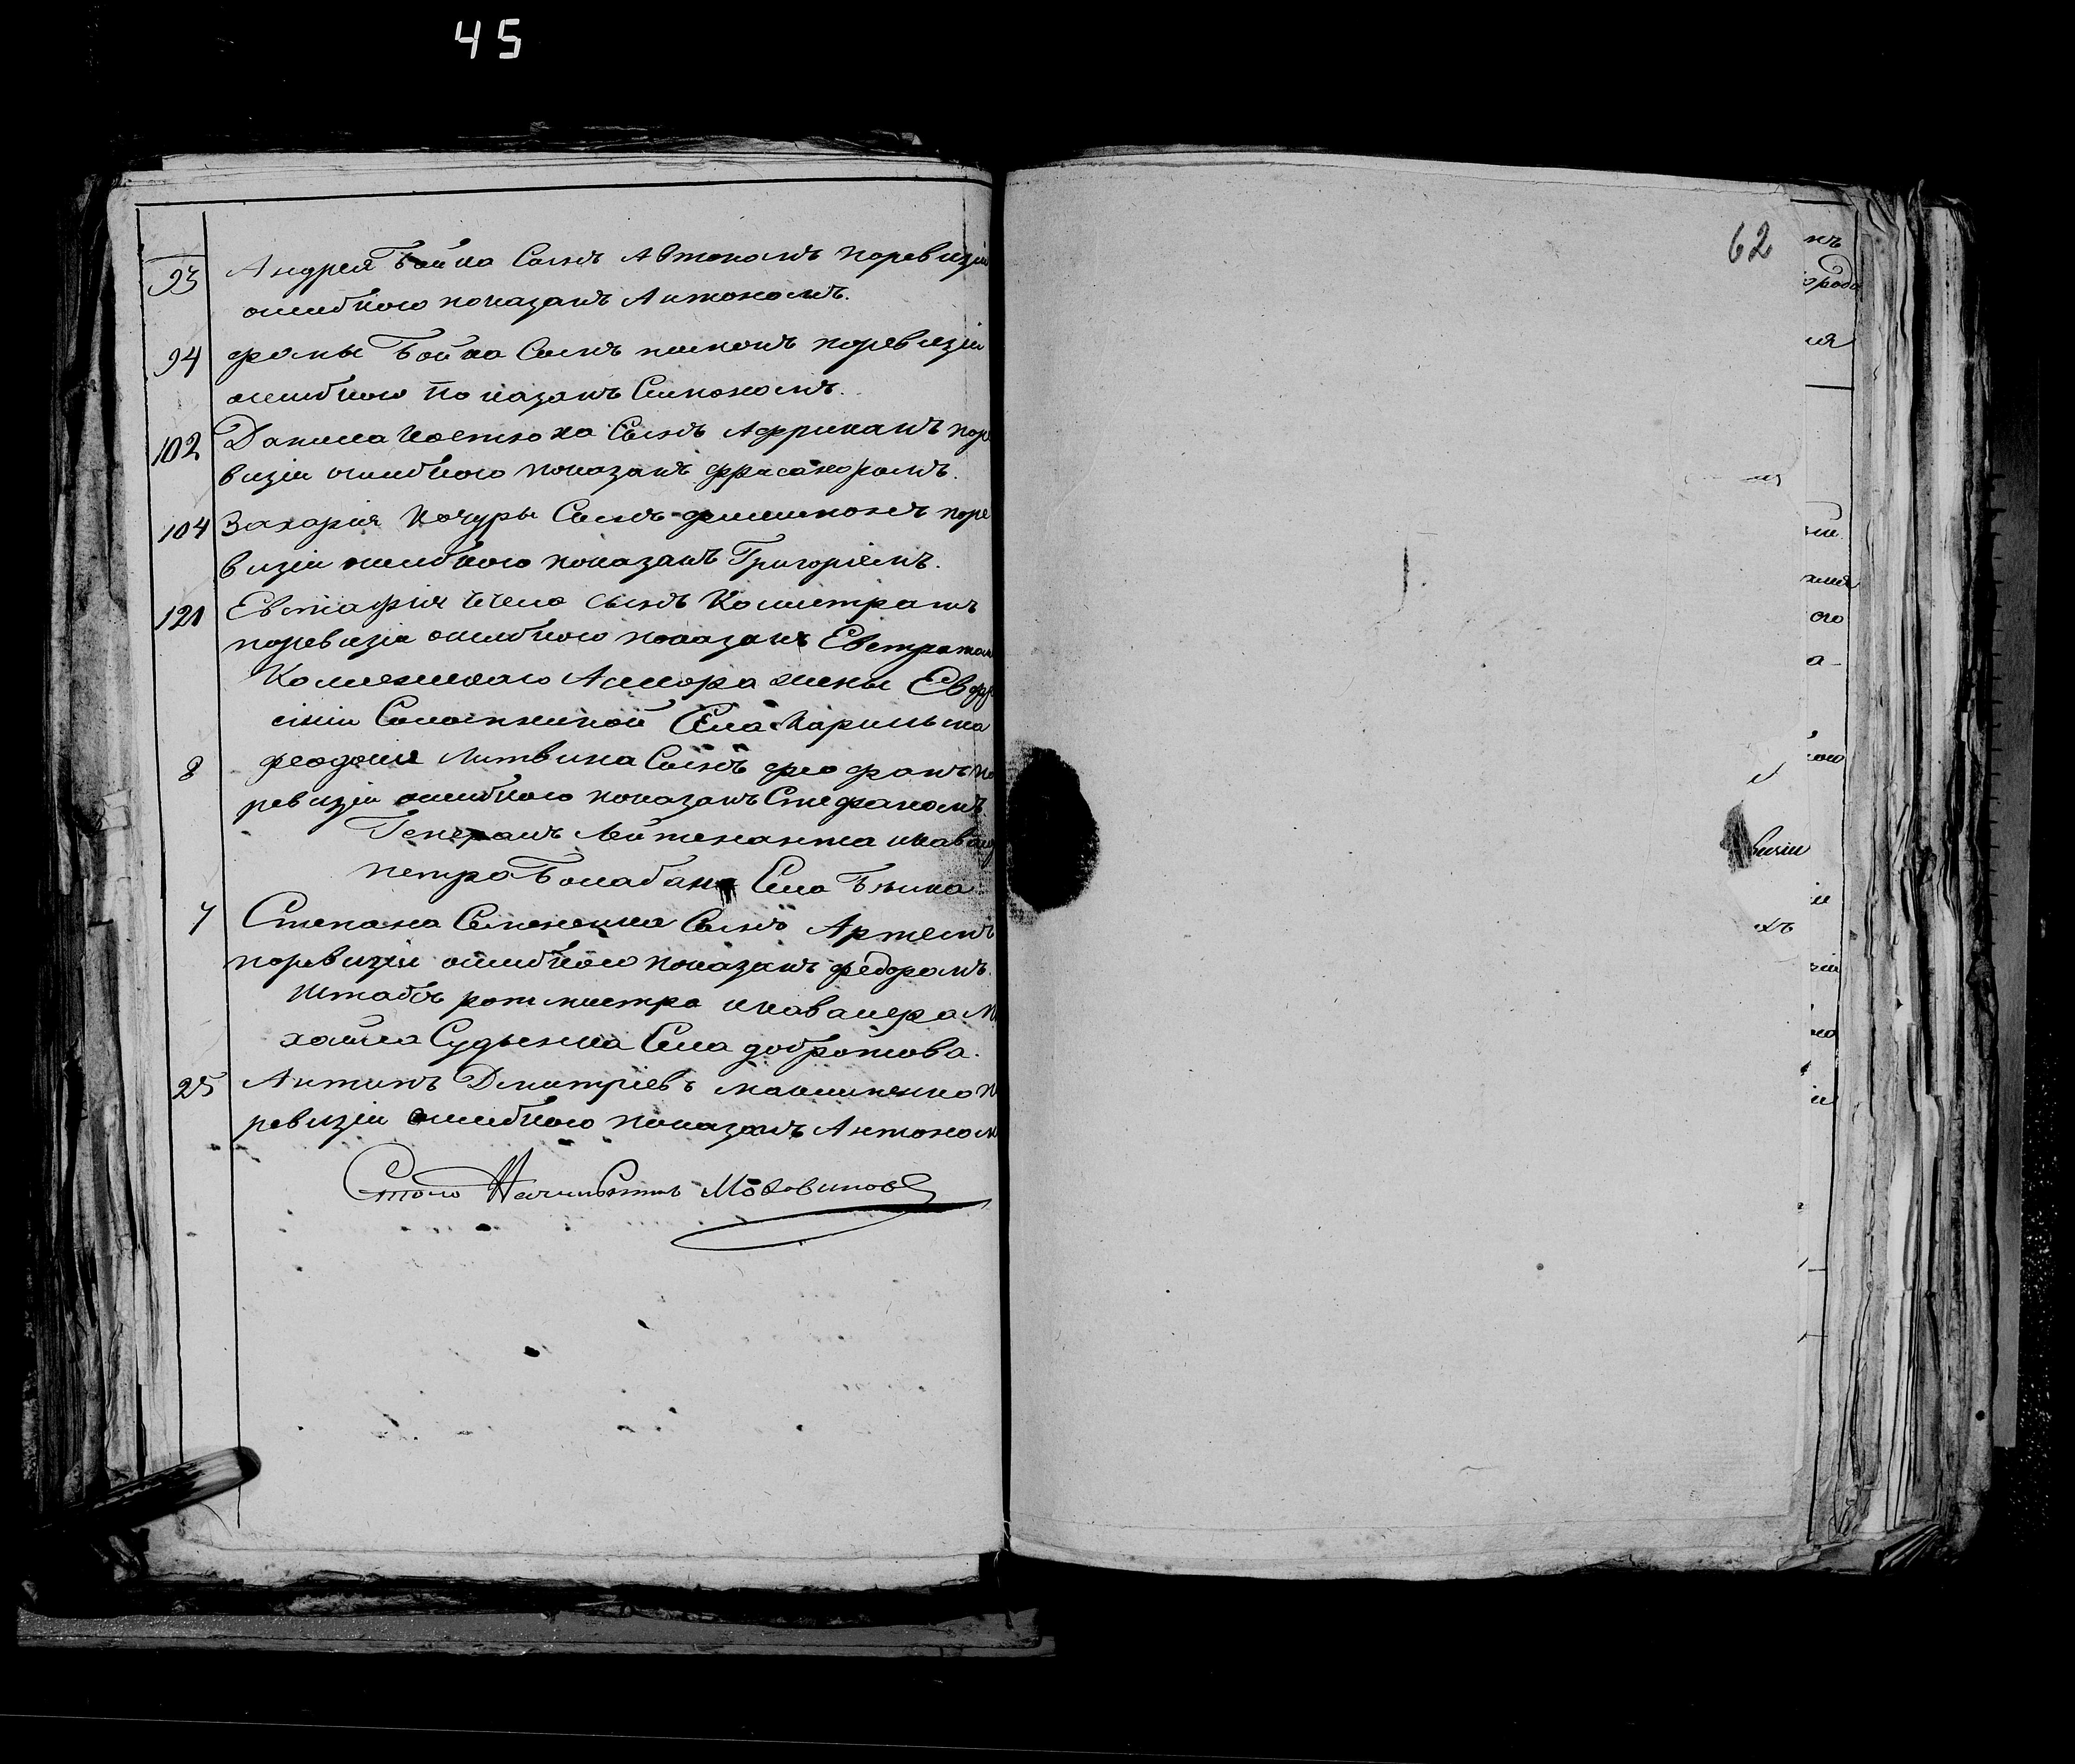 45
62
93 Андрея Бойка Сынъ Автономъ поревизіи
ошибкою показанъ Антономъ.
94 фомы Бойка Сынъ пименъ поревизіи
ошибкою показанъ Симономъ.
102 Данила Костюка Сынъ Африканъ поре
визіи ошибкою показанъ
104 Захарія Кочуры Сынъ филимонъ поре
визіи ошибкою показанъ Григоріемъ.
121 Евстафія сынъ Калистратъ
поревизіи ошибкою показанъ Евстратом
жены Евфро
сініи Села Карильска
8 феодосия Литвина Сынъ феофанъ по
ревизіи ошибкою показанъ Стефаномъ.
Генералъ Лейтенанта икавал
петра Болабана Села Бѣлика
7 Степана Семененка Сынъ Артемъ
поревизіи ошибкою показанъ федоромъ.
Штабъ ротмистра икавалера Ми
хайла Судьенка Села добротова.
25 Антипъ Дмитріевъ по
ревизіи ошибкою показанъ Антоном
Столо Начальникъ